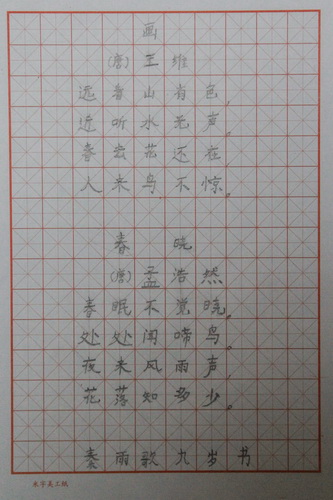 画
(唐)王维
远看山有色。
近听水无声。
春去花还在
人来鸟不惊。
春晓
(唐)孟浩然
春眠不觉晓。
处处闻啼鸟。
夜来风雨声
花落知多少。
秦雨歌九岁书
米字美工纸